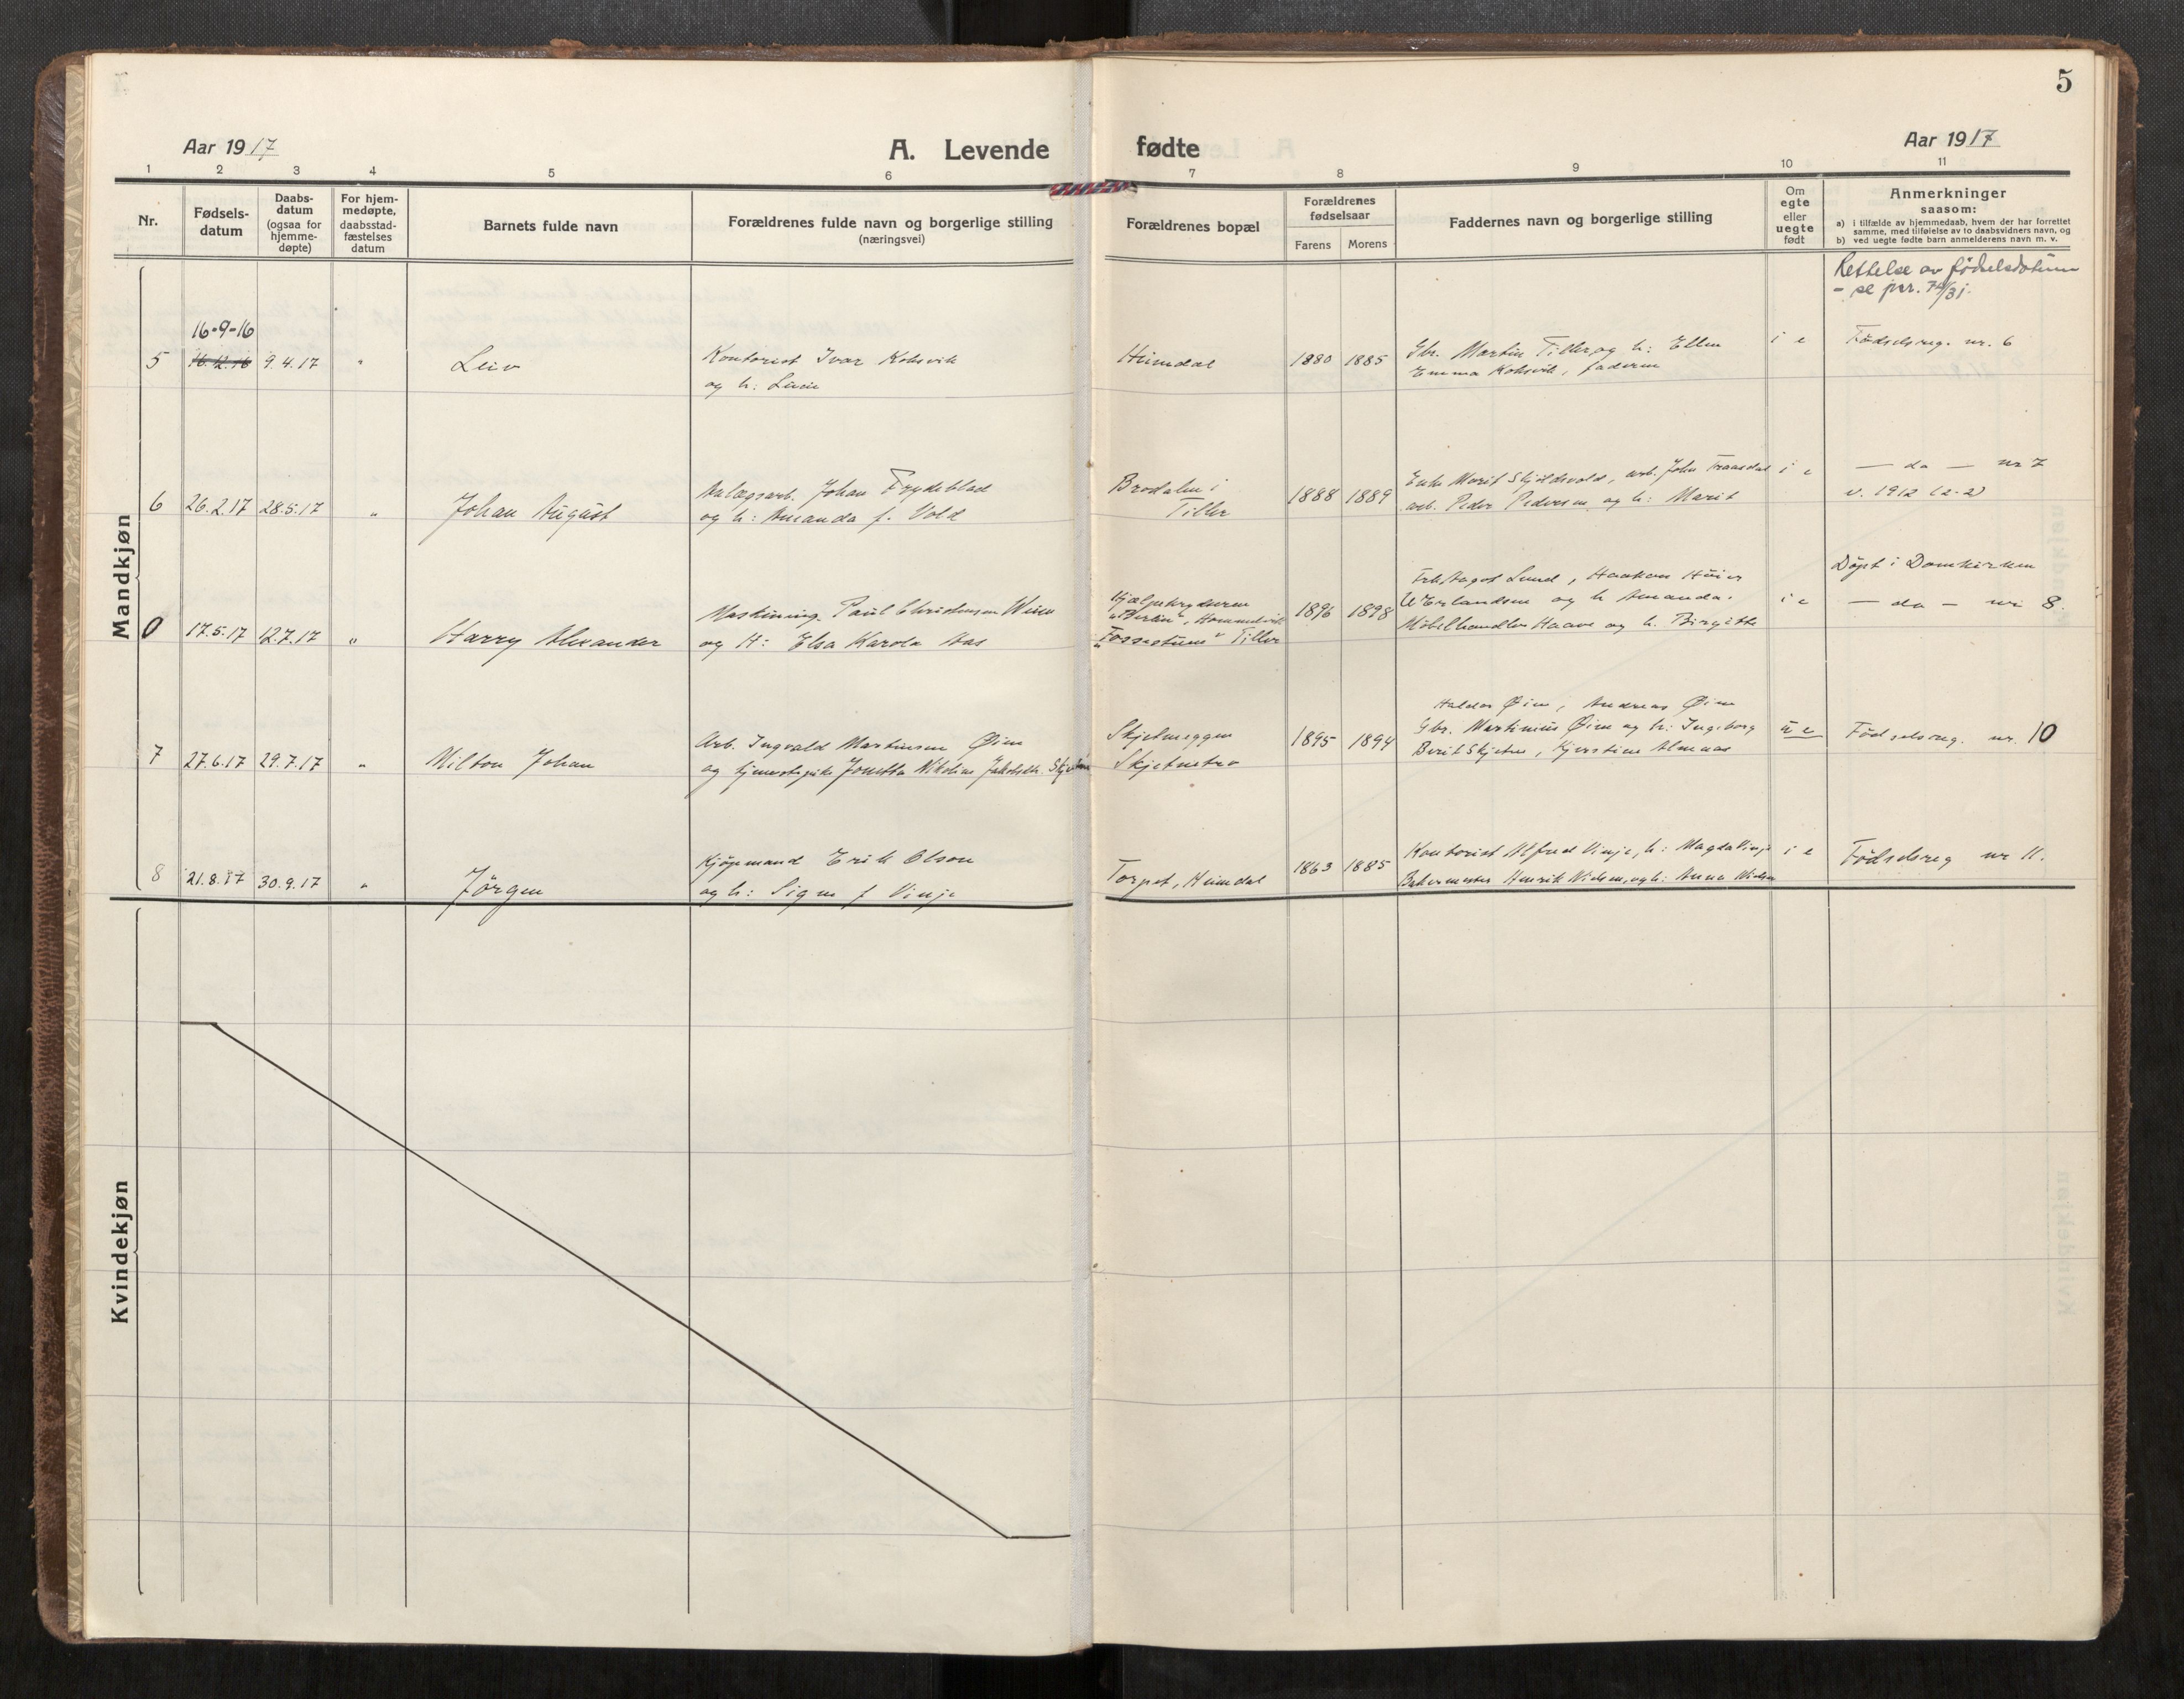 5
Aar 1917
A. Levende
fødte
Aar 1917
1 2 3 4 5 6 7 8 9 10 11
Nr.
Fødsels-
datum
Daabs-
datum
(ogsaa for
hjemme-
døpte)
For hjem-
medøpte,
daabsstad-
fæstelses
datum
Barnets fulde navn
Forældrenes fulde navn og borgerlige stilling
(næringsvei)
Forældrenes bopæl
Forældrenes
fødselsaar
Farens Morens
Faddernes navn og borgerlige stilling
Om
egte
eller
uegte
født
Anmerkninger
saasom:
a) i tilfælde av hjemmedaab, hvem der har forrettet
samme, med tilføielse av to daabsvidners navn, og
b) ved uegte fødte barn anmelderens navn m. v.
Mandkjøn
Rettelse av fødselsdatum
- se jnr. 74/31.
16-9-16
5 16.12.16 9.4.17 "
Leiv
Kontorist Ivar Kohsvik
og h:
Heimdal
1880 1885
Gbr. Martin Tiller og h: Ellen
Emma Kohsvik, faderen
i e
Fødselsreg. nr. 6
6 26.2.17 28.5.17 "
Johan August
Anlægsarb. Johan Frydeblad
og h: Amanda f. Vold
Brodalen i
Tiller
1888 1889
Enke Marit Skjøldsvold, arb. John Traasdal
arb. Peder Pedersen og h: Marit
i e
— do — nr 7
v. 1912 (2-2)
0 17.5.17 12.7.17 "
Harry Alexander
Maskining. Paul Christensen
og H: Elsa Karola Aas
Hjælpekrydseren
"Berlin", Hommelvik
"Fossestuen" Tiller
1896 1898
Frk Aagot Lund, Haakon
Erlandsen og h Amanda.
Møbelhandler Haave og h. Birgitte
i e
Døpt i Domkirken
— do — nr 8.
7 27.6.17 29.7.17 "
Milton Johan
Arb. Ingvald Martinsen Øien
og tjenestepike Jonetta Nikoline Jakobsdtr. Skjetne
Skjetneggen
Skjetnetrø
1895 1894
Haldor Øien, Andreas Øien
Gbr. Martinius Øien og h: Ingeborg
Berit Skjetne, Kjerstine Almaas
u e
Fødselsreg. nr. 10
8 21.8.17 30.9.17 "
Jørgen
Kjøpmand Erik Olson
og h: Signe f Vinje
Torpet, Heimdal
1863 1885
Kontorist Alfred Vinje, h: Magda Vinje
Bakermester Henrik Nielsen, og h: Anna Nielsen
i e
Fødselsreg nr 11.
Kvindekjøn